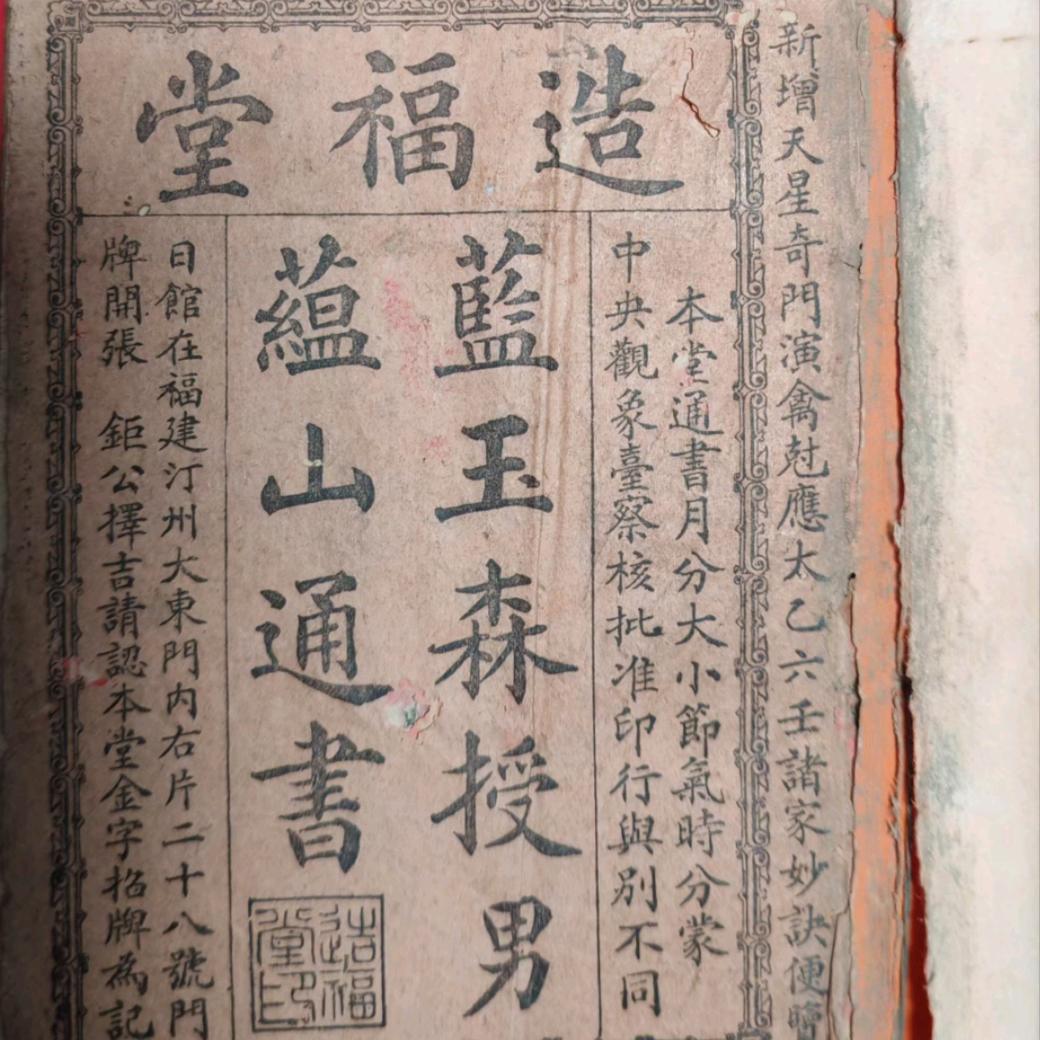 造福堂
新增天星奇門演禽尅應太乙六壬諸家妙訣便覽
本堂通書月分大小節氣時分蒙
中央觀象臺察核批准印行與別不同
藍玉森授男
蘊山通書
造福堂印
日館在福建汀州大東門內右片二十八號門
牌開張 鉅公擇吉請認本堂金字招牌為記